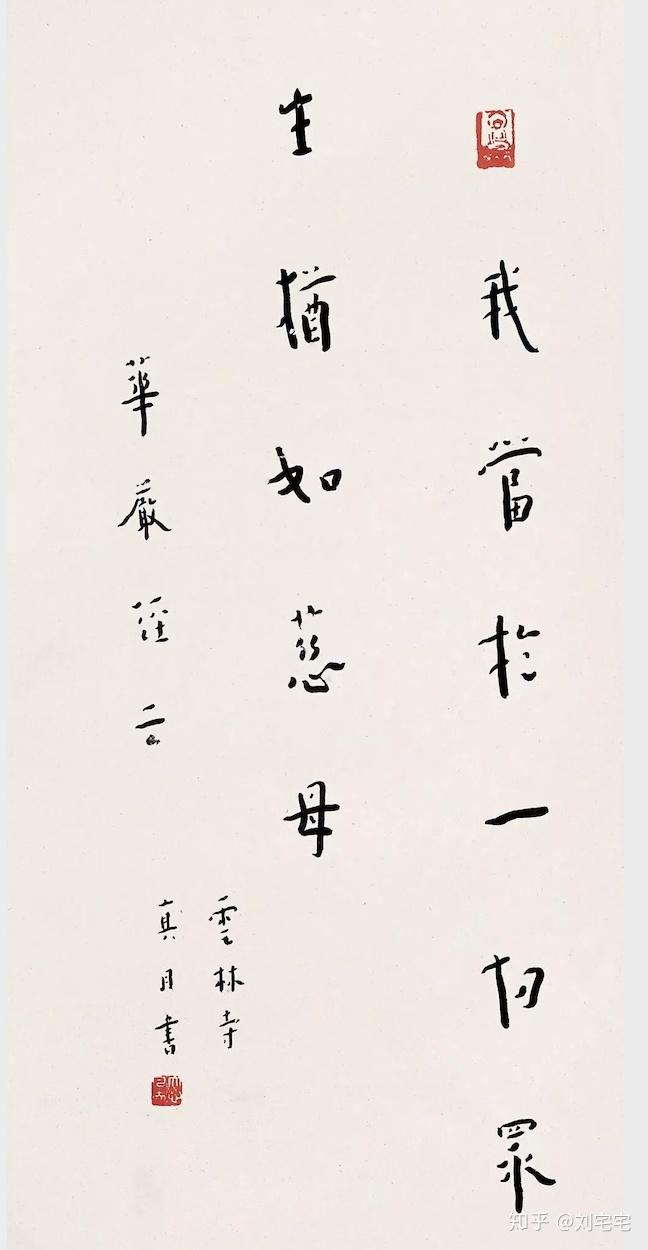 我當於一切眾
生猶如慈母
華嚴經云
雲林寺
真目書
知乎 @刘宅宅